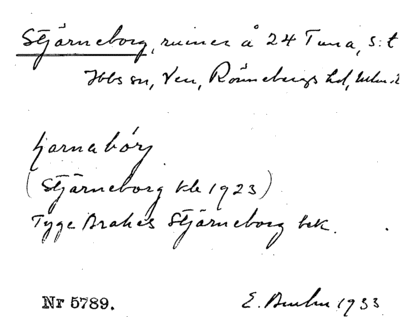 Stjärneborg, ruiner å 24 Tuna, s:t
Ibbs sn, Ven, Rönnebergs hd,
ʃarnabórj
(Stjärneborg kb 1923)
Tyge Brahes Stjärneborg bek.
Nr 5789. E. 1933